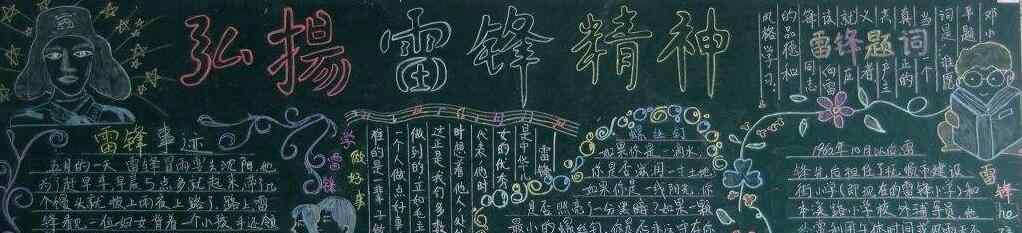 弘揚雷锋精神
雷锋事迹
五月的一天 雷锋冒雨要去沈阳,他
为了赶早车早晨5点多就起来,带了几
个馒头就披上雨衣上路了,路上,雷
锋看见一位妇女背着一个小孩,手还领
学雷锋
做好事
难的是一辈子做
一个人做点好事
做到的正如毛主
这正是我们多数
时想着他人
代表,他时
女的优秀
是中华儿
雷锋
如果你是一滴水,
你是否滋润了一寸土地
如果你是一线阳光,你
是否照亮了一分黑暗?如果一颗
最小的螺丝钉,你是否永远守在你
雷锋题词
邓小
平题
词是:谁愿
当一个
真正的
共产主
义者
就应
该向
雷锋同志
的品德和
风格学习。
1960年10月以后,雷
锋先后担任了抚顺市建设
街小学(即现在的雷锋小学)和
本溪路小学校外辅导员,他
雷锋